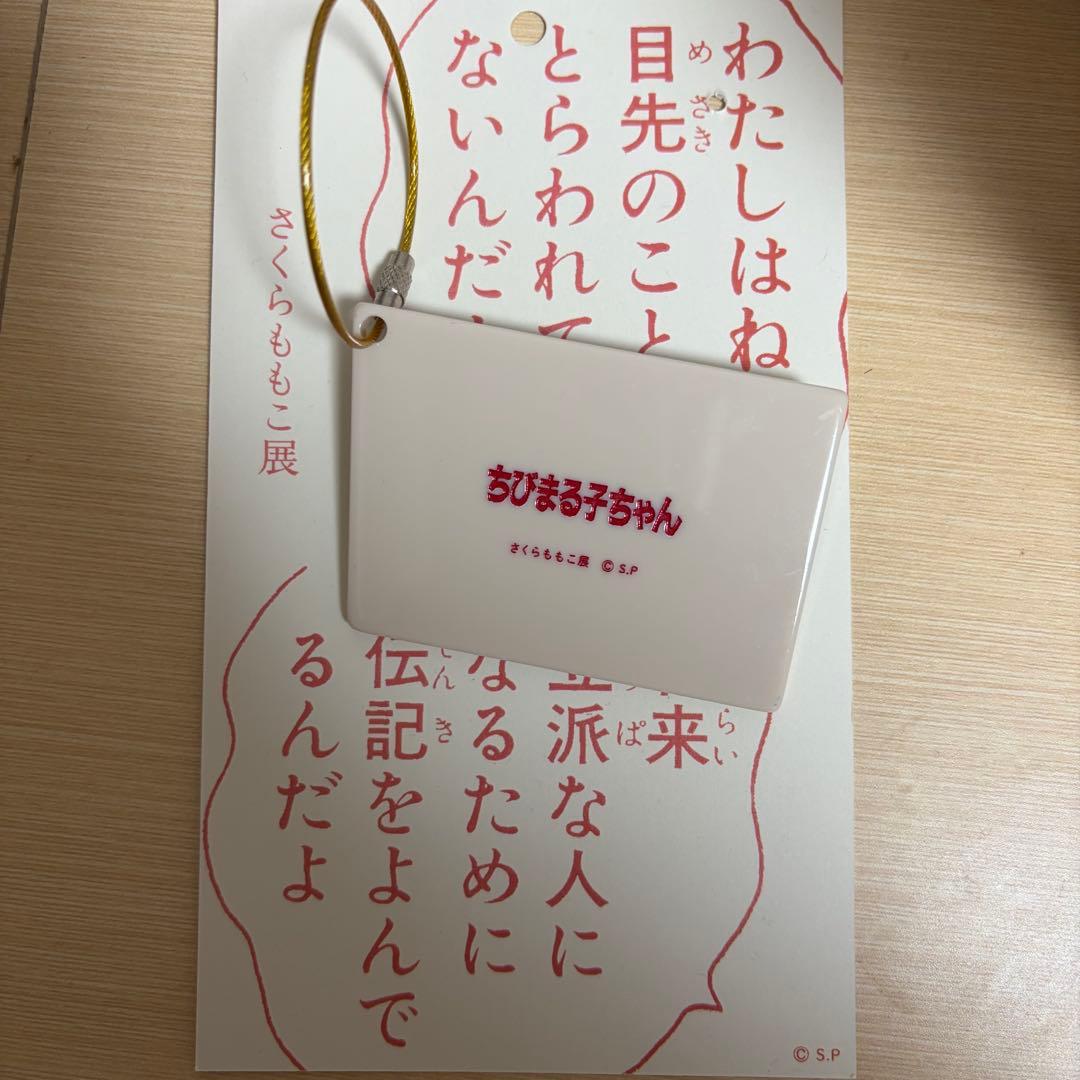 わたしはね
めさき
目先のこと
とらわれて
ないんだ
らい
来
ぱ
派な人に
なるために
んき
伝記をよんで
るんだよ
さくらももこ展
ちびまる子ちゃん
さくらももこ展 © S.P
© S.P